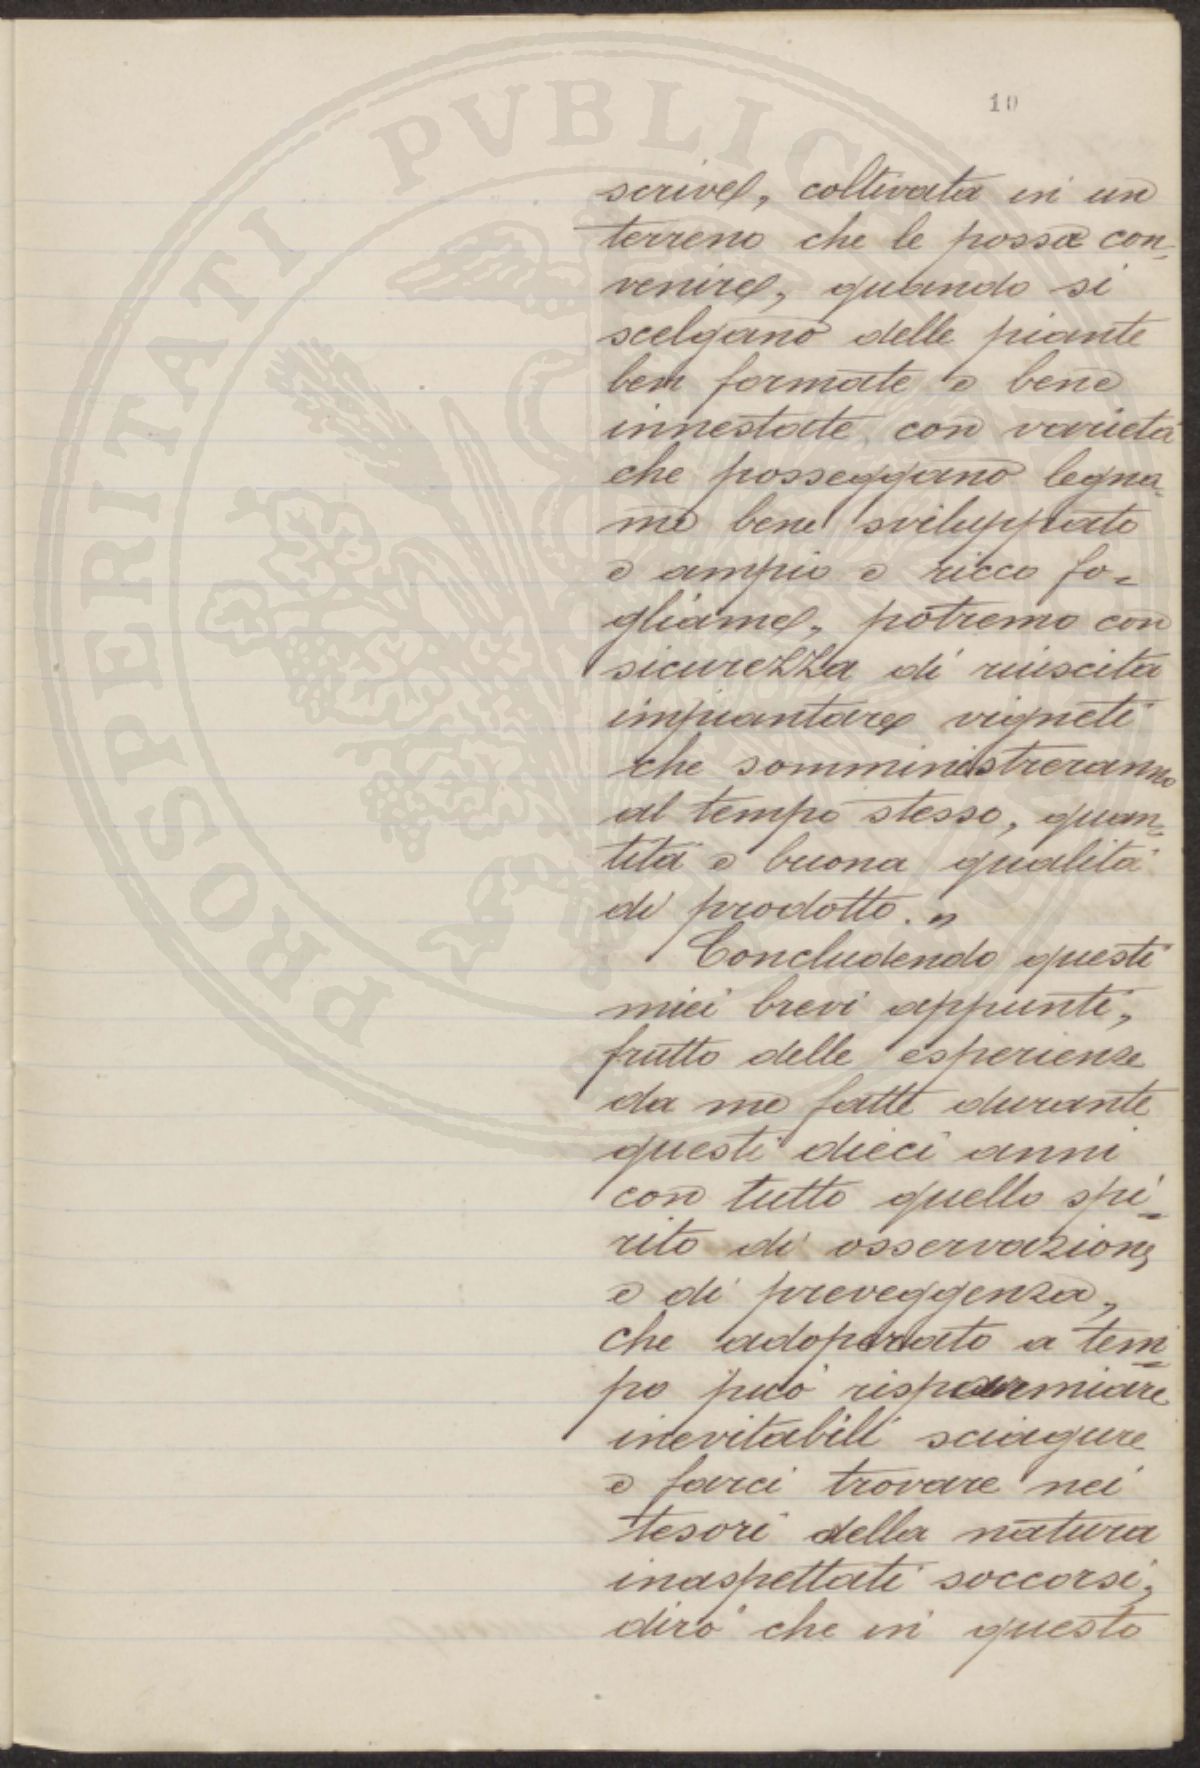 10
scrive, coltivata in un
terreno che le possa con-
venire, quando si
scelgano delle piante
ben formate e bene
innestate con varietà
che posseggano legna-
me bene sviluppato
e ampio e ricco fo-
gliame, potremo con
sicurezza di riuscita
impiantare vigneti
che somministreranno
al tempo stesso, quan-
tità e buona qualità
di prodotto."
Concludendo questi
miei brevi appunti,
frutto delle esperienze
da me fatte durante
questi dieci anni
con tutto quello spi-
rito di osservazione
e di preveggenza,
che adoperato a tem-
po può risparmiare
inevitabili sciagure
e farci trovare nei
tesori della natura
inaspettati soccorsi,
dirò che in questo
PROSPERITATI PVBLIC